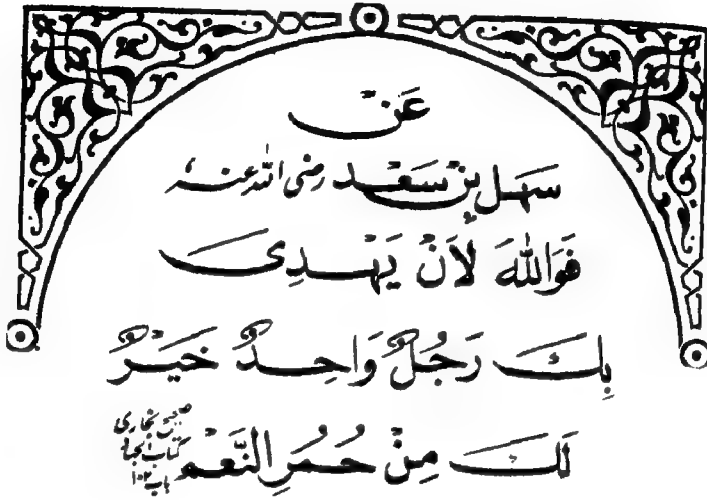 عَنْ
سَهَلِ بِنْ سَعَدْ رضی اللہ عنہ
فَوَاللهَ لَأَنْ يَهْدِى
بِكَ رَجُلٌ وَاحِدٌ خَيَرٌ
لَكَ مِنْ حُمُرِ النَّعَمْ
صحیح بخاری
کتاب الجہاد
باب ۱۰۲